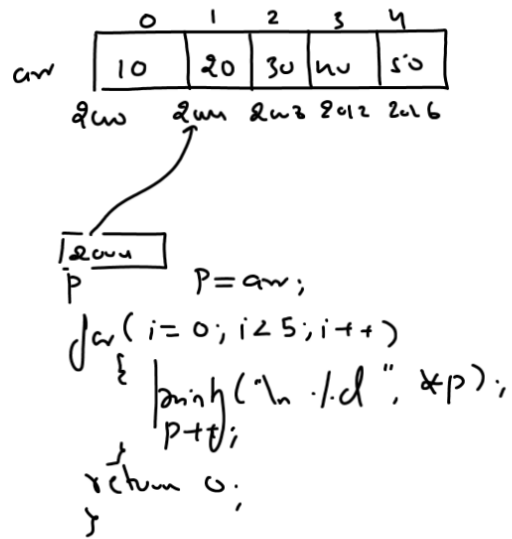 0 1 2 3 4
arr 10 20 30 40 50
2000 2004 2008 2012 2016
2004
p
P = arr;
for( i = 0; i < 5; i++)
{
printf("\n %d", *p);
p++;
}
return 0;
}